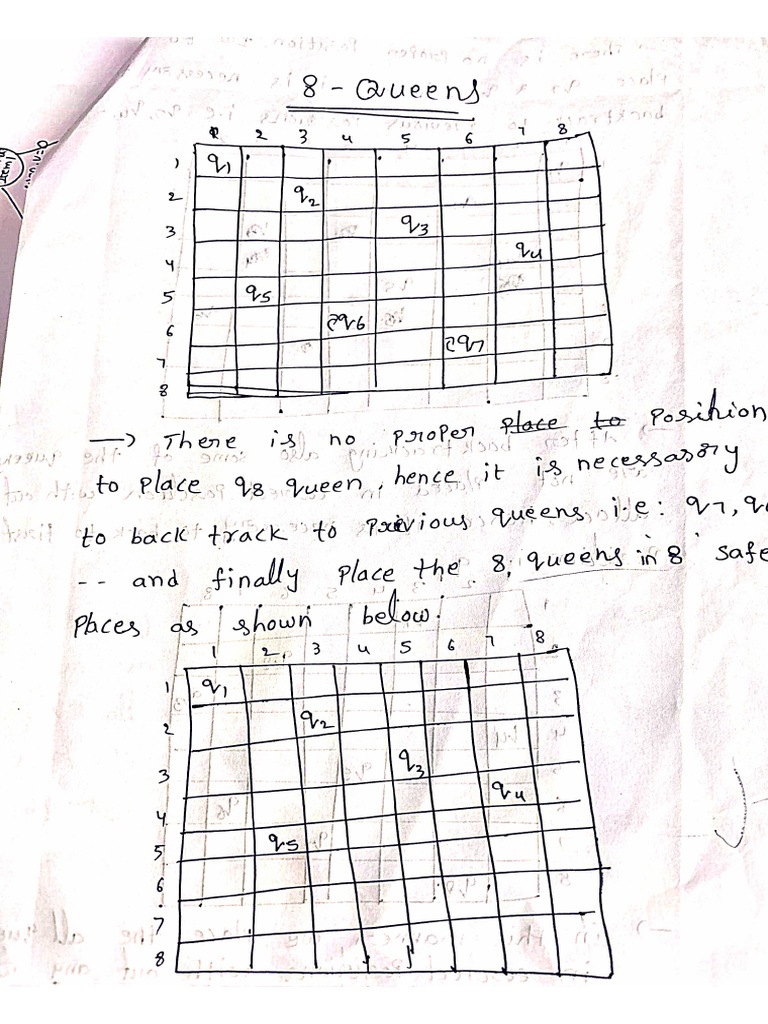 8 - Queens
1 2 3 4 5 6 7 8
1 q1
2 q2
3 q3
4 q4
5 q5
6 q6
7 q7
8
→ There is no proper place to position
to place q8 queen, hence it is necessary
to back track to previous queens i.e: q7, q6
-- and finally place the 8, queens in 8 safe
places as shown below.
1 2 3 4 5 6 7 8
1 q1
2 q2
3 q3
4 q4
5 q5
6
7
8